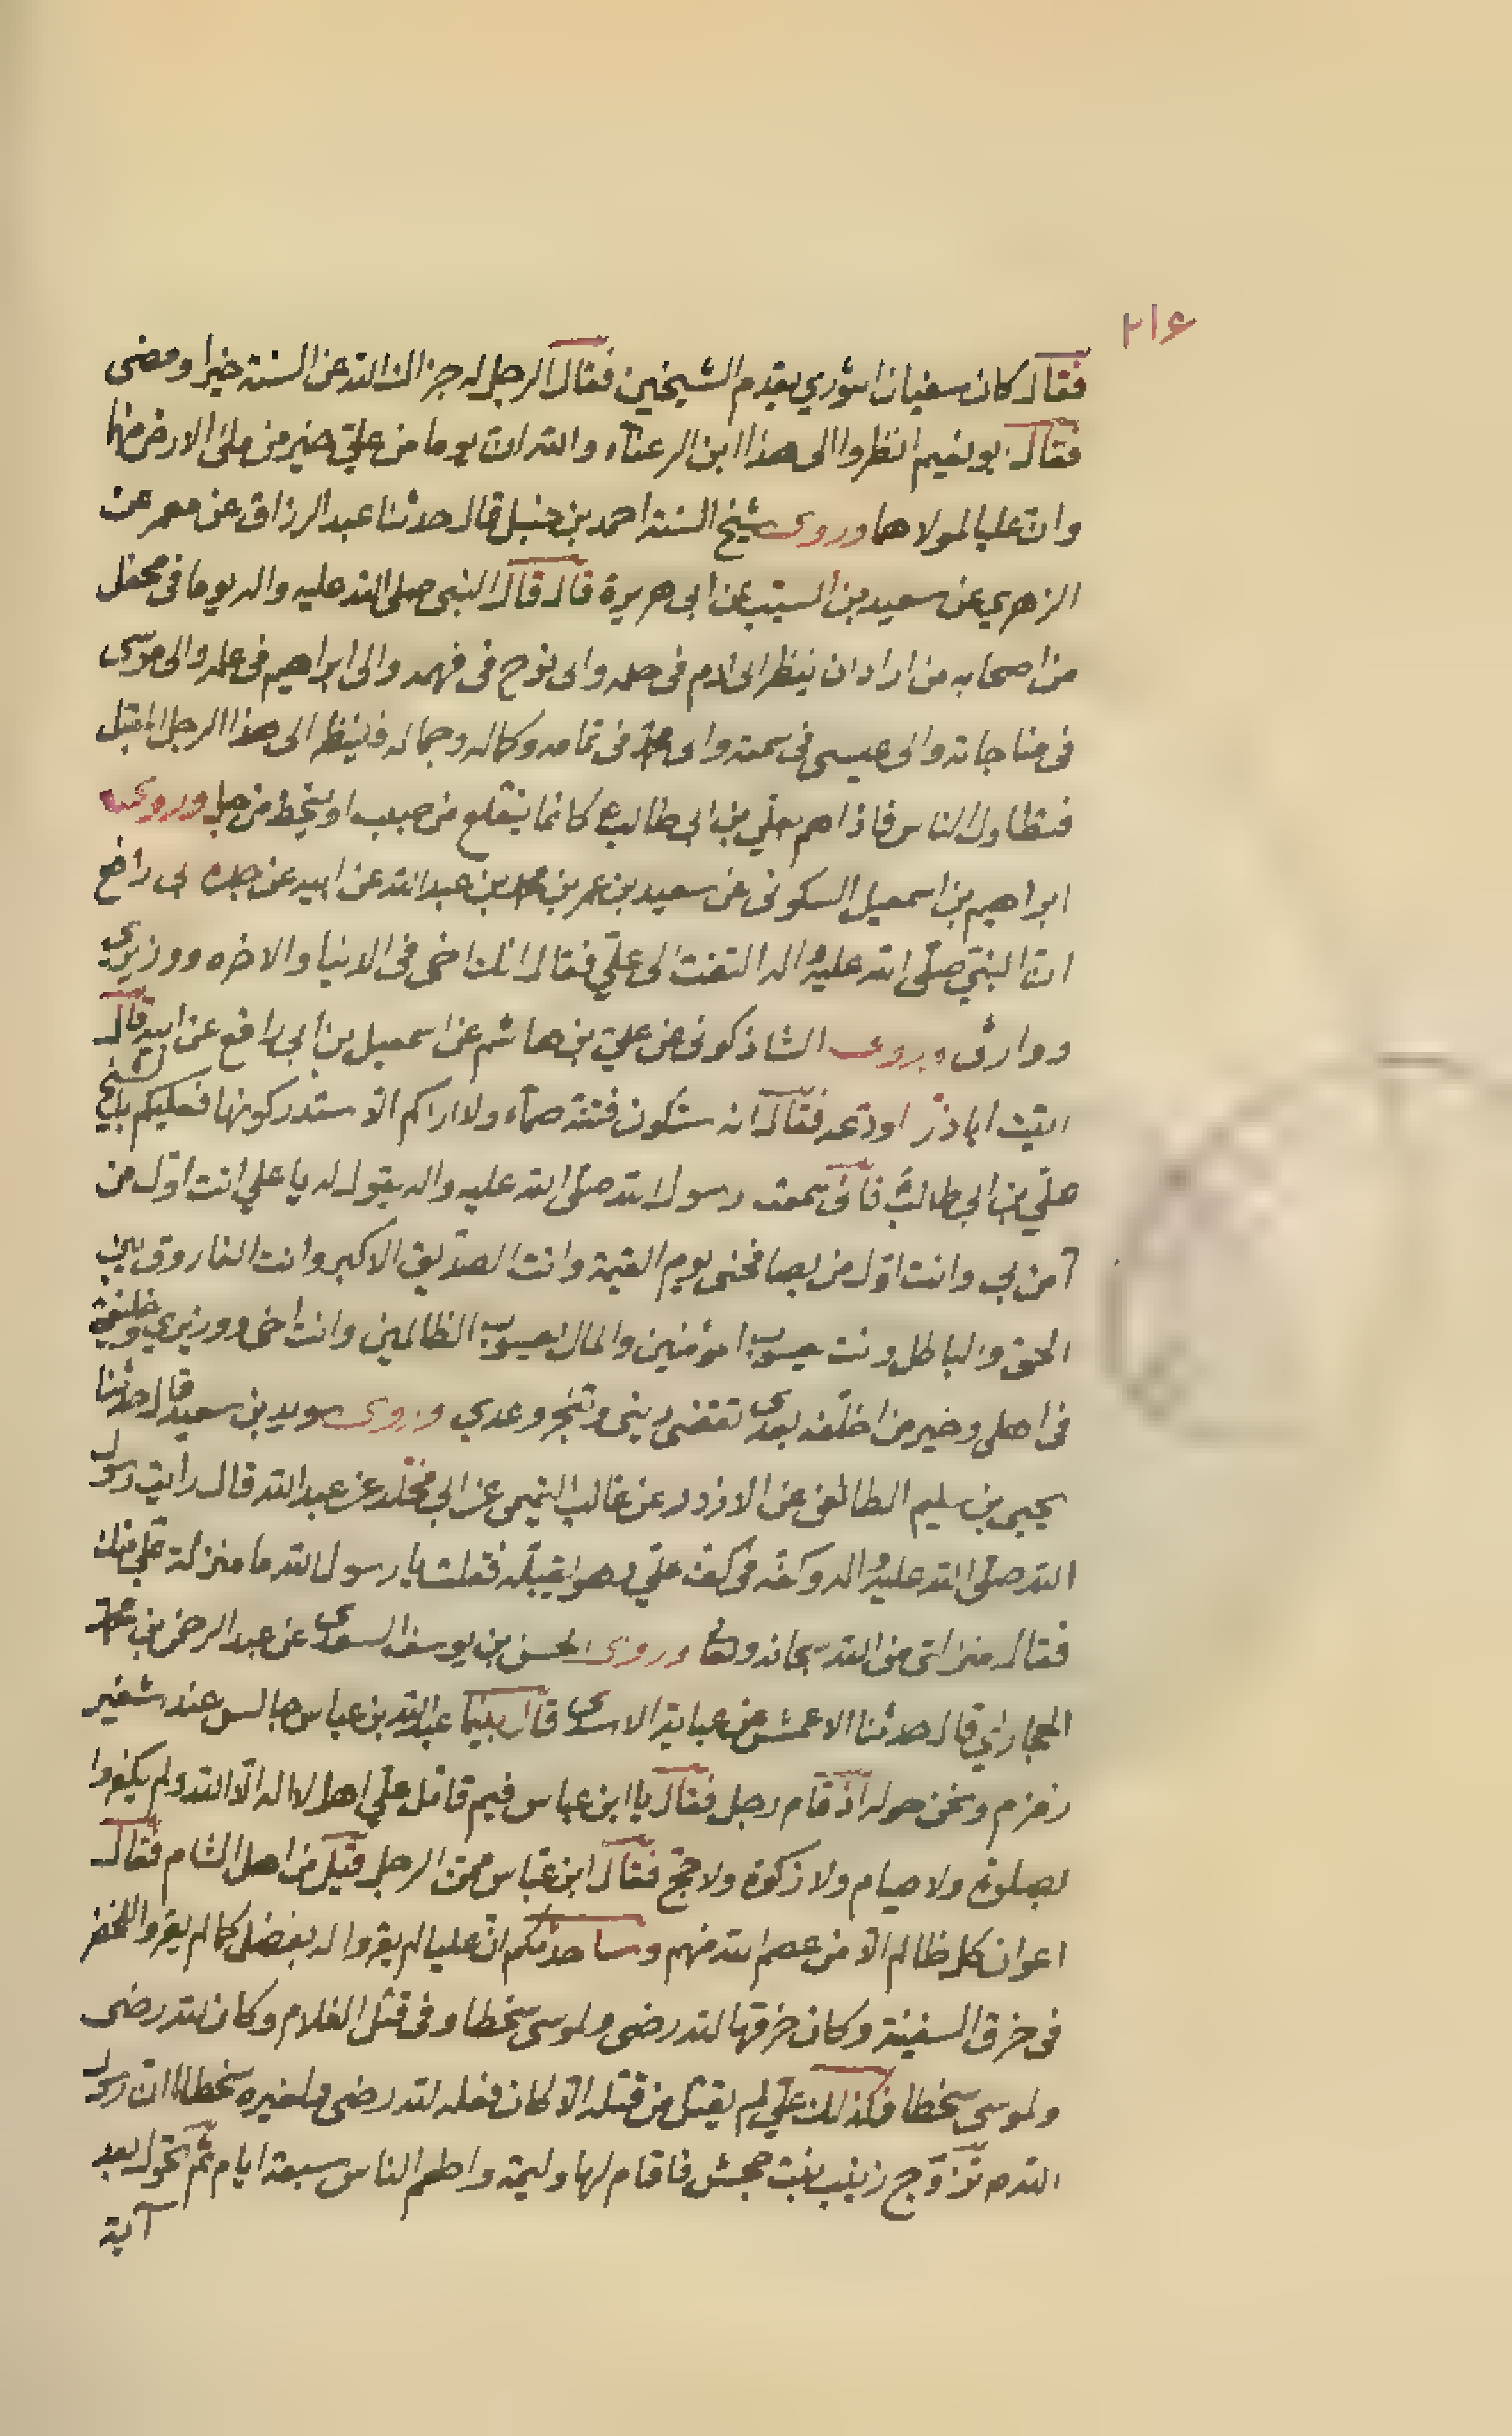 ٢١۶
فقال كان سفيان الثوري يقدم الشيخين فقال الرجل له جزاك الله عن السنة خيرا ومضى
فقال ابو نعيم انظروا الى هذا ابن الرعناء والله ان يوما من علي خير من ملئ الارض منهما
وان عليا لمولاهما وروى شيخ السنة احمد بن حنبل قال حدثنا عبد الرزاق عن معمر عن
الزهري عن سعيد بن المسيب عن ابى هريرة قال قال النبى صلى الله عليه واله يوما فى محفل
من اصحابه من اراد ان ينظر الى ادم فى علمه والى نوح فى فهمه والى ابراهيم فى حلمه والى موسى
فى مناجاته والى عيسى فى سمته والى محمد فى تمامه وكماله وجماله فلينظر الى هذا الرجل المقبل
فتطاول الناس فاذاهم بعلي بن ابى طالب ع كانما ينقلع من صبب او ينحط من جبل وروى
ابراهيم بن اسمعيل السكونى عن سعيد بن عمر بن محمد بن عبد الله عن ابيه عن جده ابى رافع
ان النبي صلى الله عليه واله التفت الى علي فقال انك اخى فى الدنيا والاخره ووزيري
ووارثى وروى الشاذكونى عن علي بن هاشم عن اسمعيل بن ابى رافع عن ابيه قال
اتيت اباذر اودعه فقال انه ستكون فتنة صماء ولا اراكم الا ستدركونها فعليكم بالشيخ
علي بن ابى طالب فانى سمعت رسول الله صلى الله عليه واله يقول له يا علي انت اول من
آمن بى وانت اول من يصافحنى يوم القيمة وانت الصديق الاكبر وانت الفاروق بين
الحق والباطل وانت يعسوب المؤمنين والمال يعسوب الظالمين وانت اخى ووزيري وخليفتى
فى اهلى وخير من اخلفه بعدى تقضى دينى وتنجز وعدي وروى سويد بن سعيد قال حدثنا
يحيى بن سليم الطائفى عن الازور عن غالب التميمى عن ابى مخلد عن عبد الله قال رايت رسول
الله صلى الله عليه واله وكفه فى كف علي وهو يقبله فقلت يا رسول الله ما منزلة علي منك
فقال منزلتى من الله سبحانه وتعا وروى الحسن بن يوسف السعدى عن عبد الرحمن بن محمد
المحاربي قال حدثنا الاعمش عن عباية الاسدى قال بينما عبد الله بن عباس جالس عند شفير
زمزم ونحن حوله اذ قام رجل فقال يا ابن عباس فيم قاتل علي اهل لا اله الا الله ولم يكفروا
بصلوة ولا صيام ولا زكوة ولا حج فقال ابن عباس ممن الرجل فقيل من اهل الشام فقال
اعوان كل ظالم الا من عصم الله منهم وساحدثكم ان عليا لم يقروا له بفضل كما لم يقروا للخضر
فى خرق السفينة وكان خرقها لله رضى ولموسى سخطا وفى قتل الغلام وكان لله رضى
ولموسى سخطا فكذلك علي لم يقتل من قتله الا كان فعله لله رضى ولغيره سخطا ان رسول
الله ص تزوج زينب بنت جحش فاقام لها وليمة واطعم الناس سبعة ايام ثم تحول بعد
آية